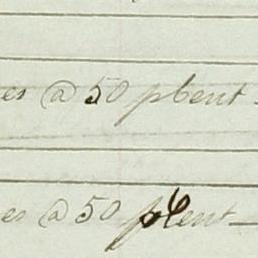 es @ 50 pCent
es @ 50 pCent